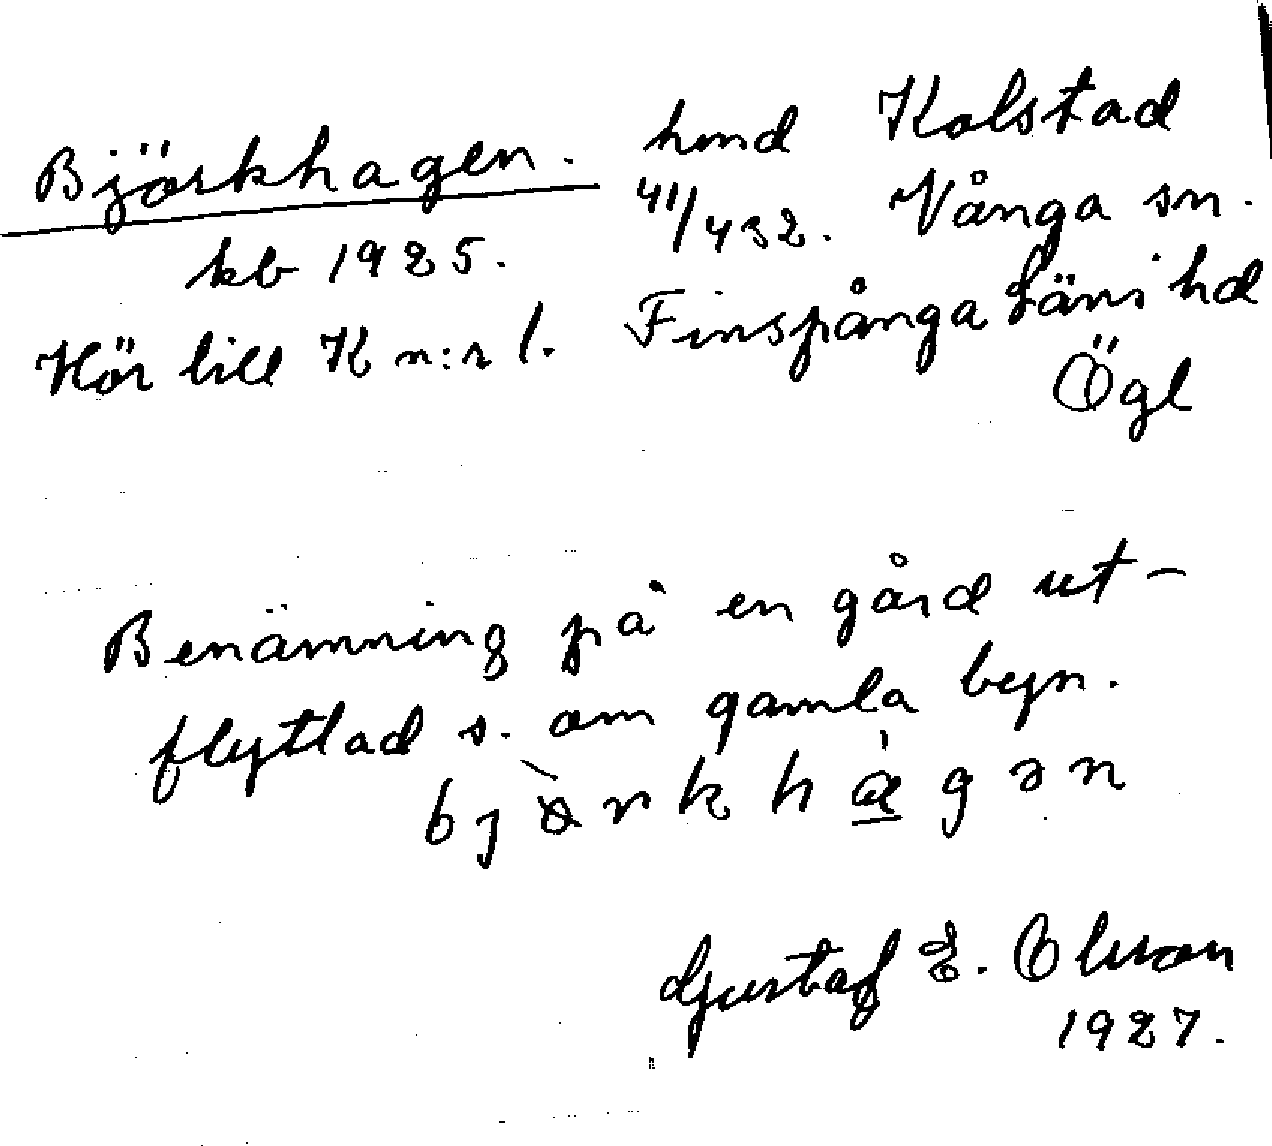 Björkhagen.
kb 1925.
Hör till K n:r 1.
hmd Kolstad
41/432. Vånga sn.
Finspånga Läns hd
Ögl
Benämning på en gård ut-
flyttad s. om gamla byn.
Gustaf E. Olsson
1927.